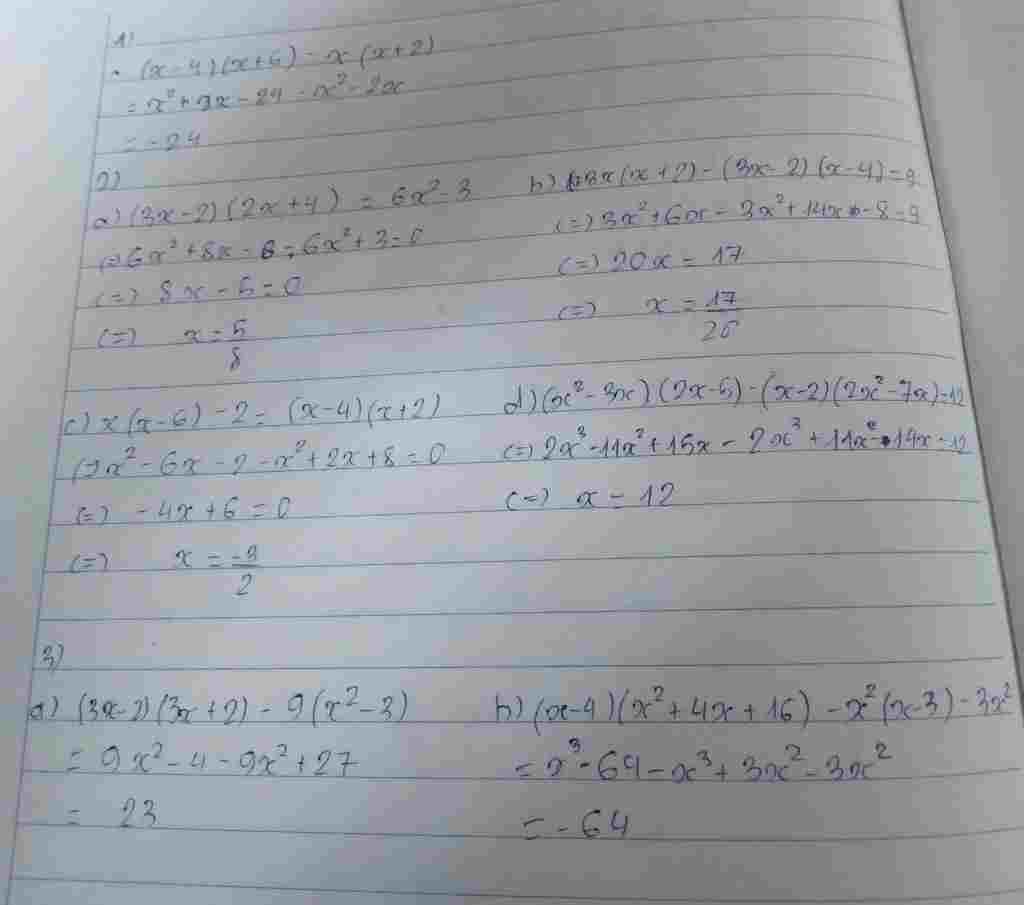 1)
. (x-4)(x+6) - x(x+2)
= x² + 2x - 24 - x² - 2x
= -24
2)
a) (3x-2)(2x+4) = 6x² - 3
(=) 6x² + 8x - 8 - 6x² + 3 = 0
(=) 8x - 5 = 0
(=) x = 5/8
b) 3x(x+2) - (3x-2)(x-4) = 9
(=) 3x² + 6x - 3x² + 14x - 8 = 9
(=) 20x = 17
(=) x = 17/20
c) x(x-6) - 2 = (x-4)(x+2)
(=) x² - 6x - 2 - x² + 2x + 8 = 0
(=) -4x + 6 = 0
(=) x = -3/2
d) (x² - 3x)(2x-5) - (x-2)(2x² - 7x) = 12
(=) 2x³ - 11x² + 15x - 2x³ + 11x² - 14x = 12
(=) x = 12
3)
a) (3x-2)(3x+2) - 9(x² - 3)
= 9x² - 4 - 9x² + 27
= 23
b) (x-4)(x² + 4x + 16) - x²(x-3) - 3x²
= x³ - 64 - x³ + 3x² - 3x²
= -64